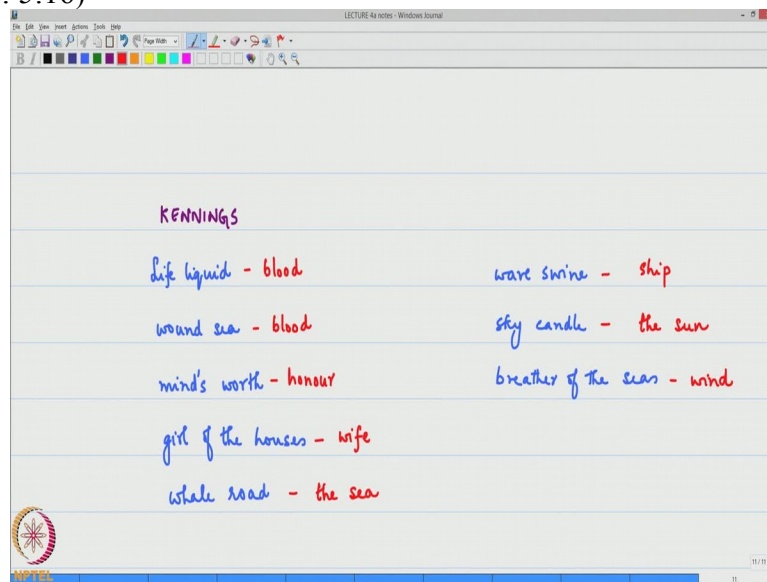 : 5:16)
LECTURE 4a notes - Windows Journal
File Edit View Insert Actions Tools Help
Page Width
B I
KENNINGS
life liquid - blood
wound sea - blood
mind's worth - honour
girl of the houses - wife
whale road - the sea
wave swine - ship
sky candle - the sun
breather of the seas - wind
NPTEL
11/11
11